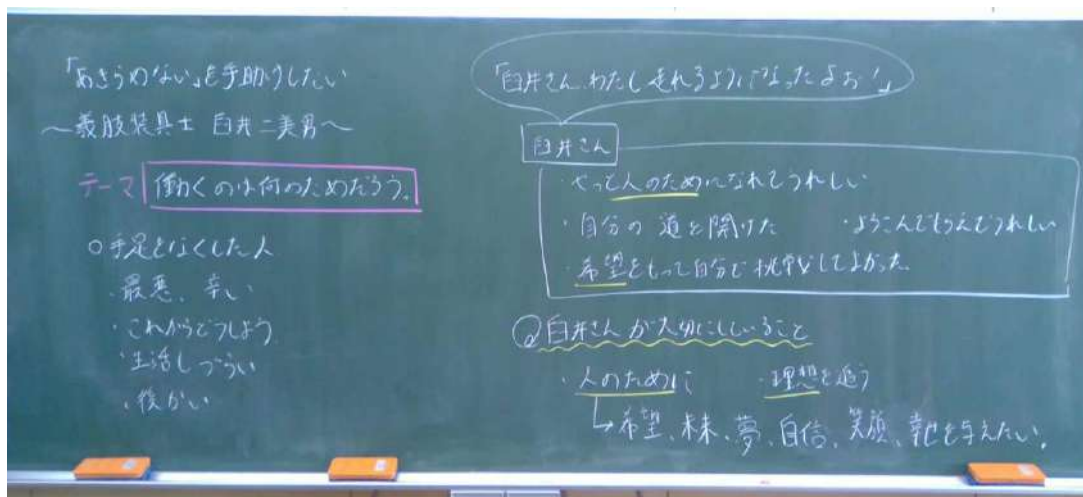 「あきらめない」を手助けしたい
～義肢装具士 臼井二美男～
テーマ 働くのは何のためだろう。
○手足をなくした人
・最悪、辛い
・これからどうしよう
・生活しづらい
・後かい
「臼井さん、わたし走れるようになったよお！」
臼井さん
・やっと人のためになれてうれしい
・自分の道を開けた ・よろこんでもらえてうれしい
・希望をもって自分で挑戦してよかった
臼井さんが大切にしていること
・人のために ・理想を追う
↳希望、未来、夢、自信、笑顔、幸せを与えたい。